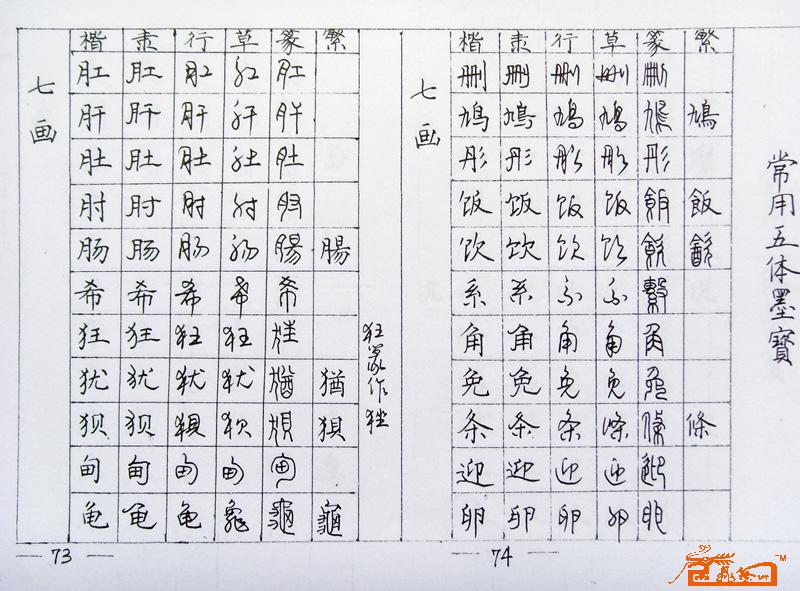 楷 隶 行 草 篆 繁
七画
肛 肛 肛 肛 肛
肝 肝 肝 肝 肝
肚 肚 肚 肚 肚
肘 肘 肘 肘 肘
肠 肠 肠 肠 腸 腸
希 希 希 希 希
狂 狂 狂 狂 狂
犹 犹 犹 犹 猶 猶
狈 狈 狽 狈 狽 狽
甸 甸 甸 甸 甸
龟 龟 龟 龜 龜 龜
狂篆作
73
楷 隶 行 草 篆 繁
七画
删 删 删 删 删
鸠 鸠 鸠 鸠 鳩 鳩
彤 彤 彤 彤 彤
饭 饭 饭 饭 飯 飯
饮 饮 饮 饮 飲
系 系 系 系 繫
角 角 角 角 角
免 免 免 免 免
条 条 条 條 條 條
迎 迎 迎 迎 迎
卵 卵 卵 卵 卵
74
常用五体墨寶